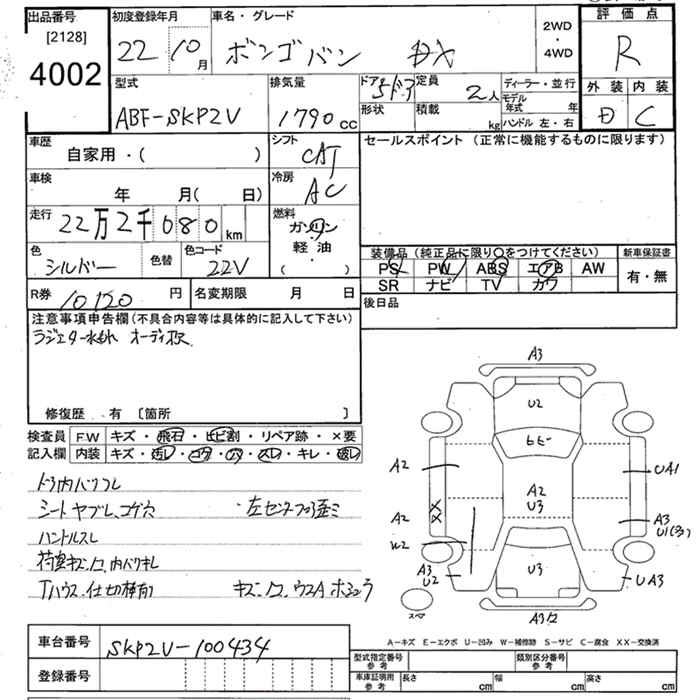 出品番号
[2128]
4002
初度登録年月
22 10 月
車名・グレード
ボンゴバン DX
2WD
・
4WD
評価点
R
外装 内装
D C
型式
ABF-SKP2V
排気量
1790 cc
ドア
5ドア
形状
定員
2人
積載
kg
ディーラー・並行
モデル年式 年
ハンドル 左・右
車歴
自家用・( )
シフト
CAT
セールスポイント (正常に機能するものに限ります)
車検
年 月( 日)
冷房
AC
走行
22万2千080 km
燃料
ガソリン
軽油
( )
色
シルバー
色替
色コード
22V
装備品 (純正品に限り○をつけてください)
PS PW ABS エアB AW
SR ナビ TV カワ
新車保証書
有・無
R券
10120 円
名変期限 月 日
後日品
注意事項申告欄(不具合内容等は具体的に記入して下さい)
ラジエター水もれ オーディオ欠
修復歴 有 [箇所 ]
検査員
記入欄
FW キズ・飛石・ヒビ割・リペア跡・×要
内装 キズ・汚レ・コゲ・穴・スレ・キレ・破レ
ドア内バリフレ
シートヤブレ、コゲ穴
ハンドルスレ
荷室キズ
Tハウス、仕切棒有
車台番号 SKP2V-100434
登録番号
A3
U2
ヒビ
A2
U3
U3
A3
A2
A2
W2
A3
U2
UA1
A3
U1
UA3
XX
スペア
A-キズ E-エクボ U-凹み W-補修跡 S-サビ C-腐食 XX-交換済
型式指定番号
参考
類別区分番号
参考
車庫証明用
参考
長さ cm 幅 cm 高さ cm